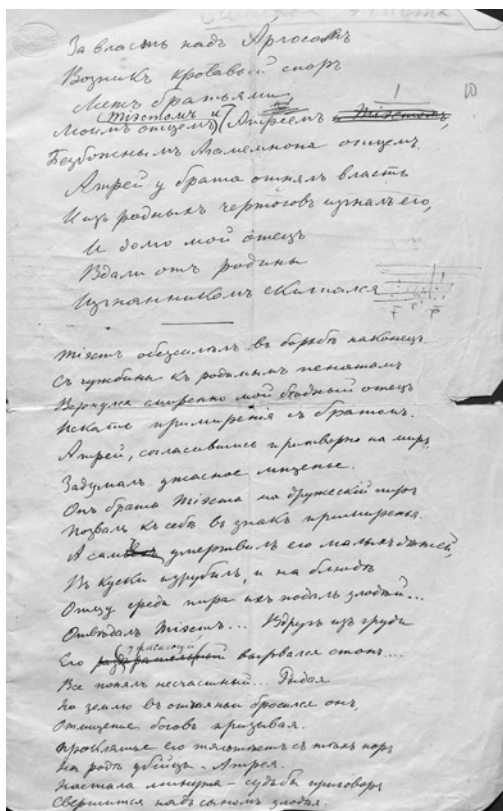 За власть надъ Аргосомъ
Возникъ кровавый споръ
Межъ братьями
Моимъ отцемъ Тіэстомъ и Атреемъ и Тіэстомъ,
Безбожнымъ Агамемнона отцемъ.
Атрей у брата отнялъ власть
И изъ родныхъ чертоговъ изгналъ его,
И долго мой отецъ
Вдали отъ родины
Изгнанникомъ скитался
Тіэстъ обезсилѣлъ въ борьбѣ наконецъ
Съ чужбины къ родимымъ пенатамъ
Вернулся смиренно мой бѣдный отецъ
Искать примиренія съ братомъ.
Атрей, согласившись притворно на миръ,
Задумалъ ужасное мщенье.
Онъ брата Тіэста на дружескій пиръ
Позвалъ къ себѣ въ знакъ примиренья.
А самъ умертвилъ его малыхъ дѣтей,
Въ куски изрубилъ, и на блюдѣ
Отцу среди пира ихъ подалъ злодѣй...
Отвѣдалъ Тіэстъ... Вдругъ изъ груди
Его ужасный вырвался стонъ....
Все понялъ несчастный... Рыдая
На землю въ отчаяньи бросился онъ,
Отмщение боговъ призывая.
Проклятье его тяготѣетъ съ тѣхъ поръ
На родъ убійцы - Атрея.
Настала минута - судьбы приговоръ
Свершится надъ сыномъ злодѣя.